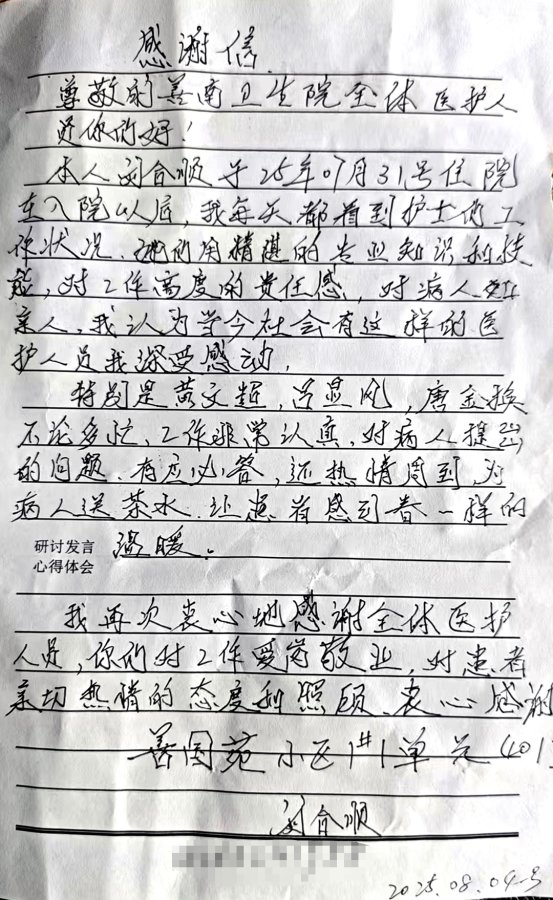 感谢信
尊敬的善南卫生院全体医护人
员你们好！
本人刘合顺于25年07月31号住院
在入院以后，我每天都看到护士的工
作状况，她们用精湛的专业知识和技
能，对工作高度的责任感，对病人如
亲人，我认为学今社会有这样的医
护人员我深受感动。
特别是黄文超，吕显凤，唐金换
不论多忙，工作非常认真，对病人提出
的问题，有应必答，还热情周到，为
病人送茶水，让患者感到春一样的
研讨发言
心得体会
温暖。
我再次衷心地感谢全体医护
人员，你们对工作爱岗敬业，对患者
亲切热情的态度和照顾，衷心感谢
善国苑小区1#1单元401
刘合顺
2025.08.04号